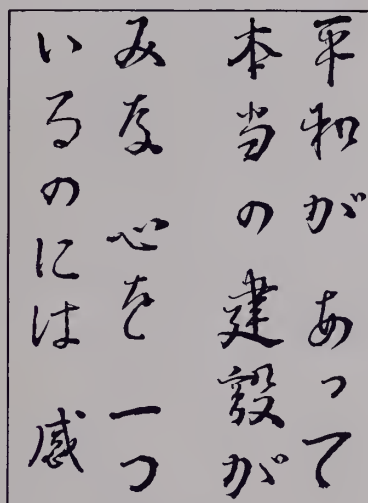 平和が あって
本当の建設が
みな 心を 一つ
いるのには 感